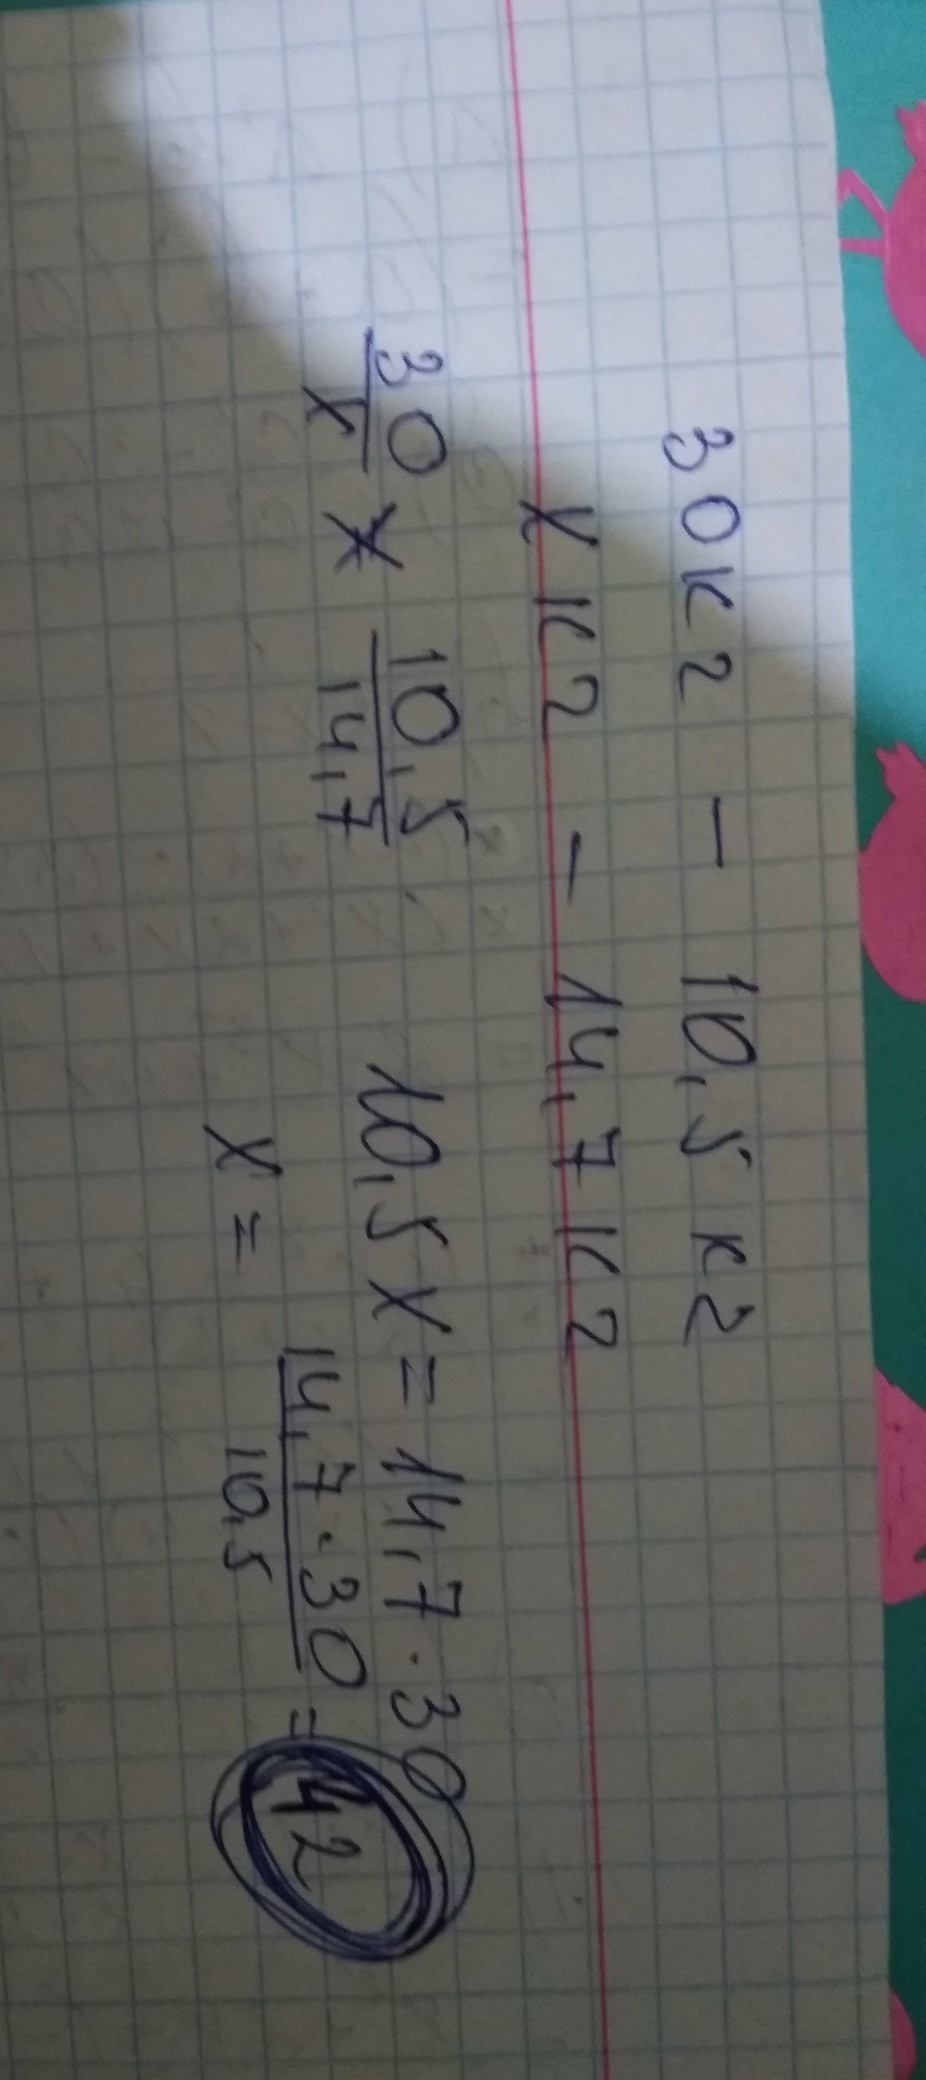 30 кг - 10,5 кг
x кг - 14,7 кг
30/x × 10,5/14,7
10,5x = 14,7 · 30
x = 14,7 · 30/10,5 = 42